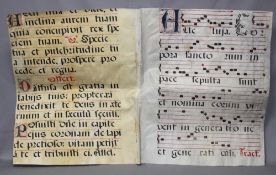 aurem tuam quia
concupivit rex spe
ciem tuam. V. Specie
tua et pulchritudine tu
a intende, prospere pro
cede, et regna.
Offert.
Diffusa est gratia in
labiis tuis: propterea
benedixit te deus in aeter
num et in saeculum saeculi.
Posuisti dñe in capite
ejus coronam de lapi
de pretioso: vitam petiit
a te et tribuisti ei, Allel.
Alle luja. Cor
pora sancto rum in
pace sepulta sunt
et nomina eorum vi
vent in generatio ne
et gene rati oné. Tract.